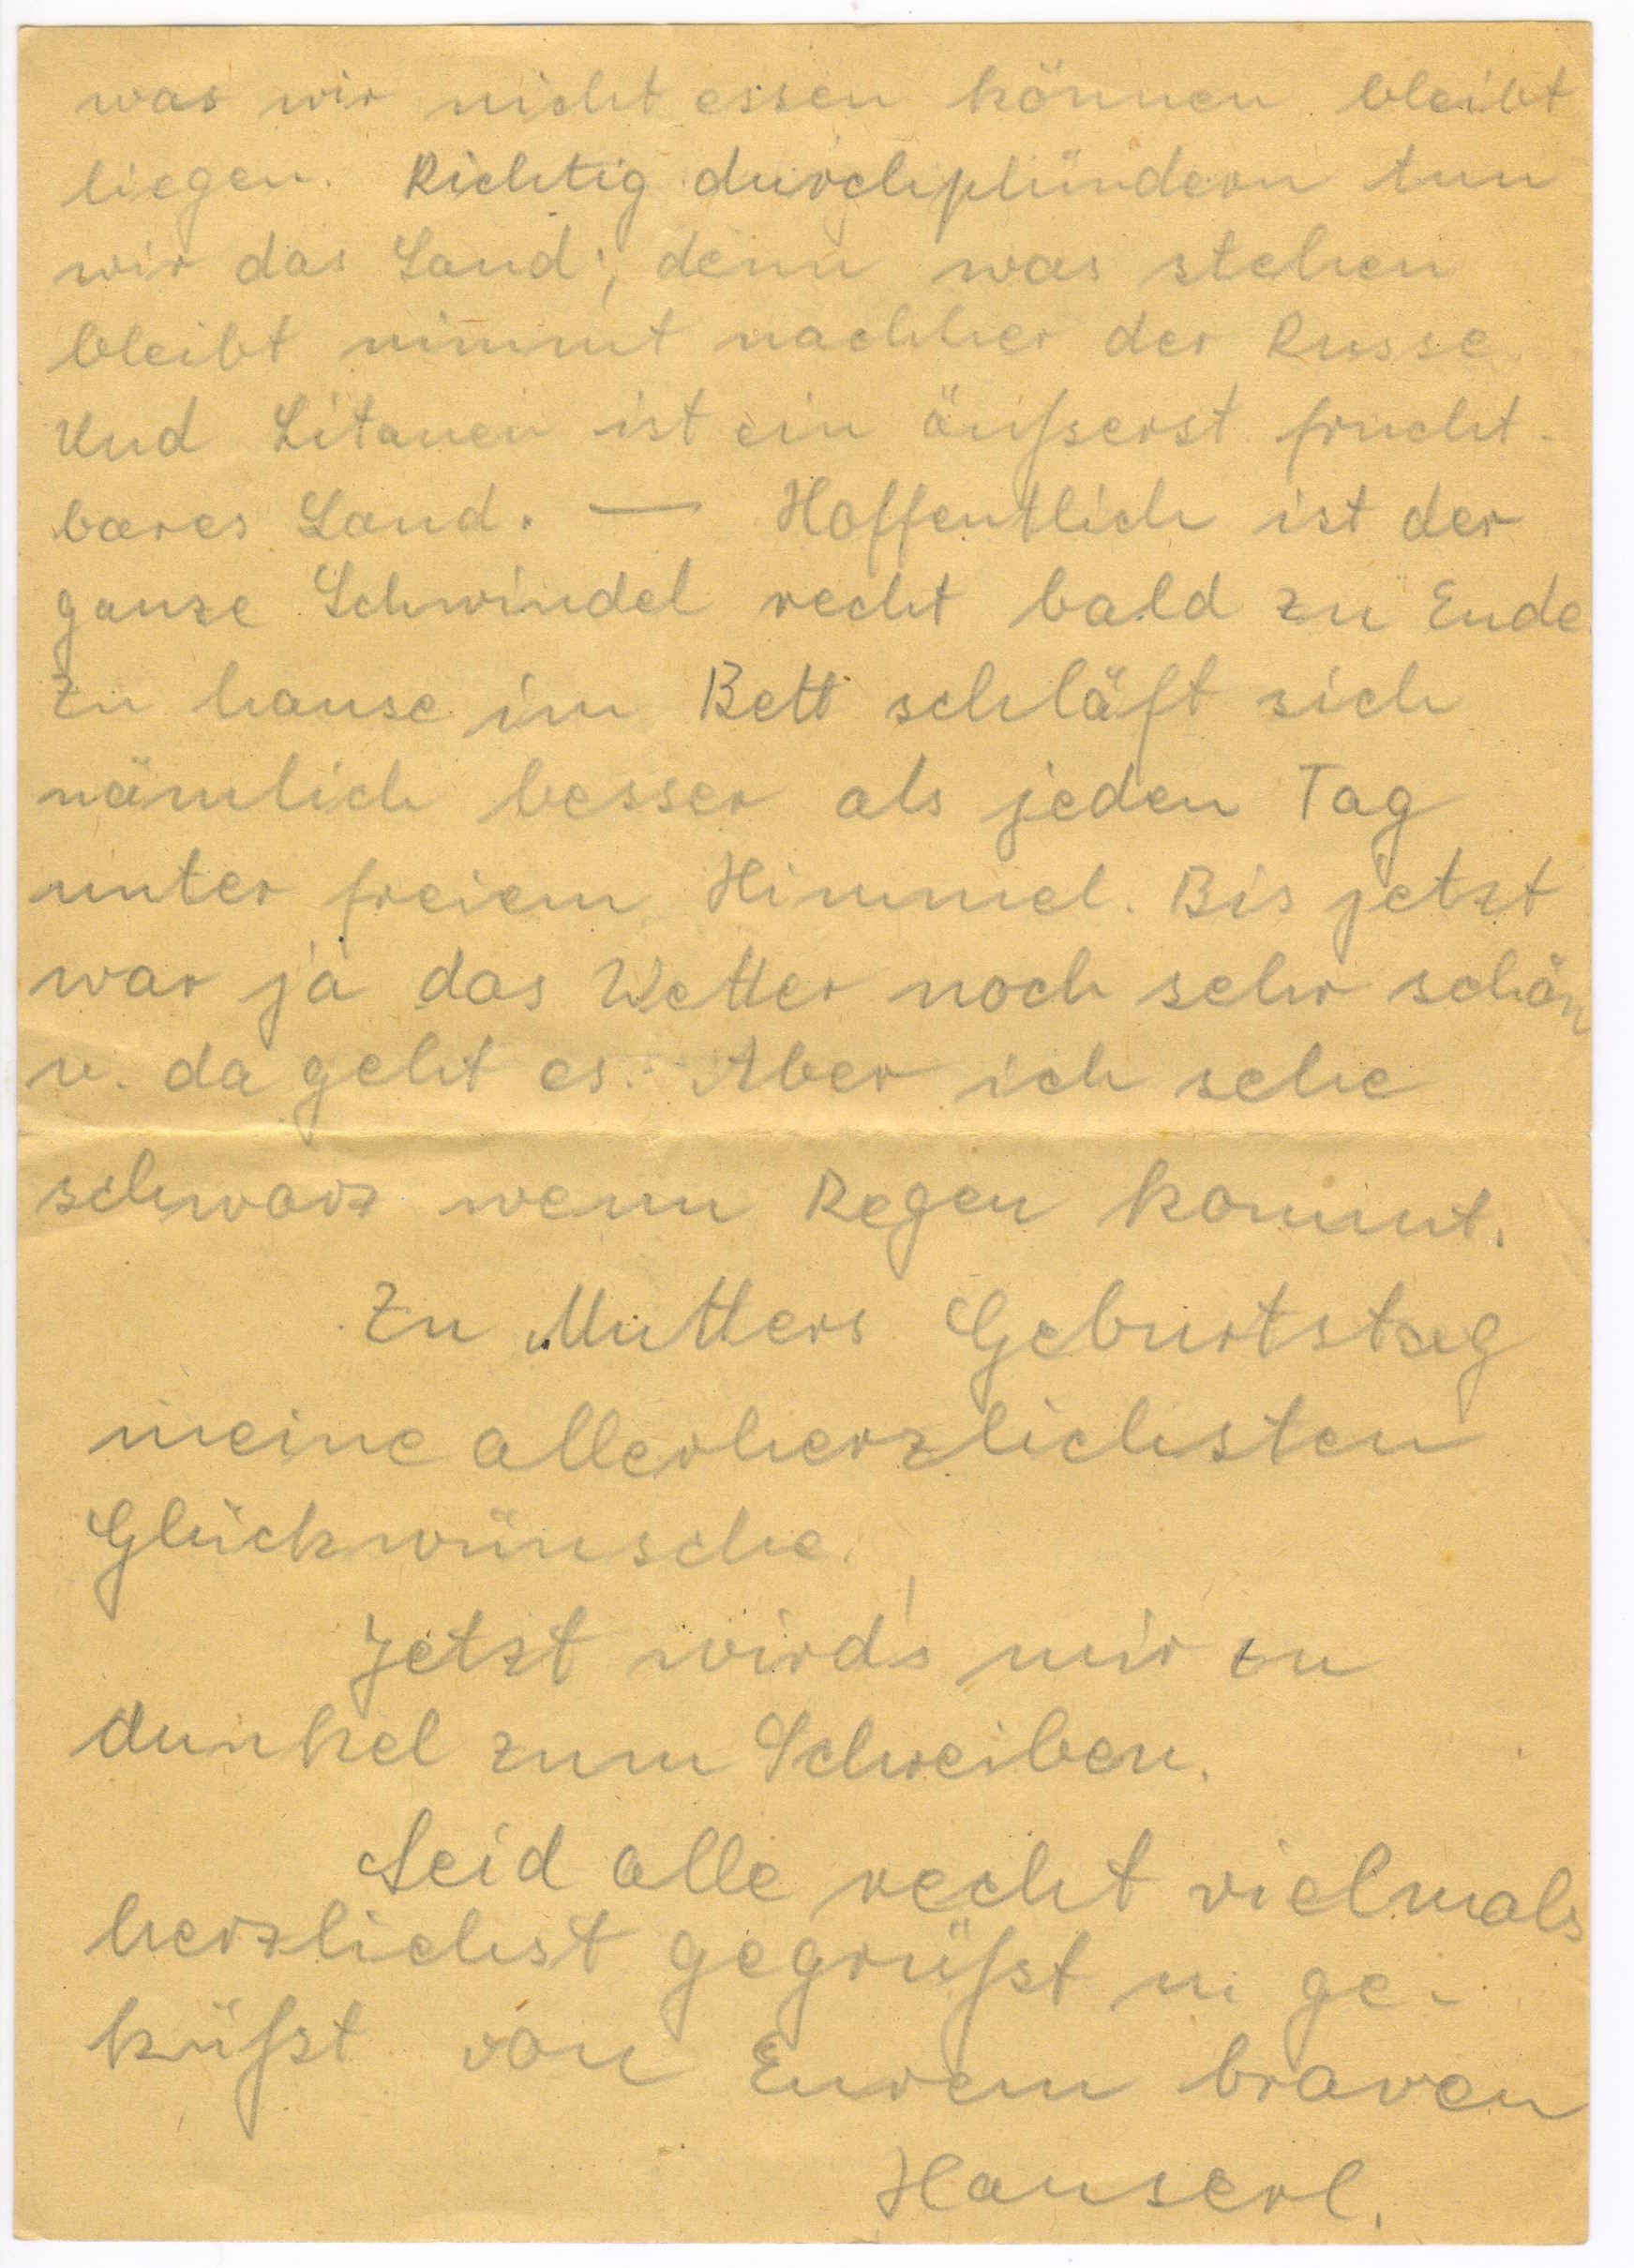 was wir nicht essen können bleibt
liegen. Richtig durchplündern tun
wir das Land; denn was stehen
bleibt nimmt nachher der Russe.
Und Litauen ist ein äußerst frucht-
bares Land. — Hoffentlich ist der
ganze Schwindel recht bald zu Ende
Zu hause im Bett schläft sich
nämlich besser als jeden Tag
unter freiem Himmel. Bis jetzt
war ja das Wetter noch sehr schön
u. da geht es. Aber ich sehe
schwarz wenn Regen kommt.
Zu Mutters Geburtstag
meine allerherzlichsten
Glückwünsche.
Jetzt wird's mir zu
dunkel zum Schreiben.
Seid alle recht vielmals
herzlichst gegrüßt u. ge-
küßt von Eurem braven
Hanserl.